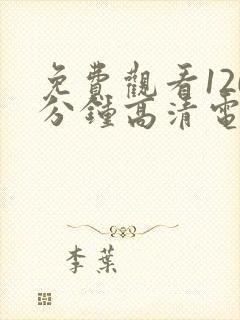 免費觀看120
分鐘高清電
李葉